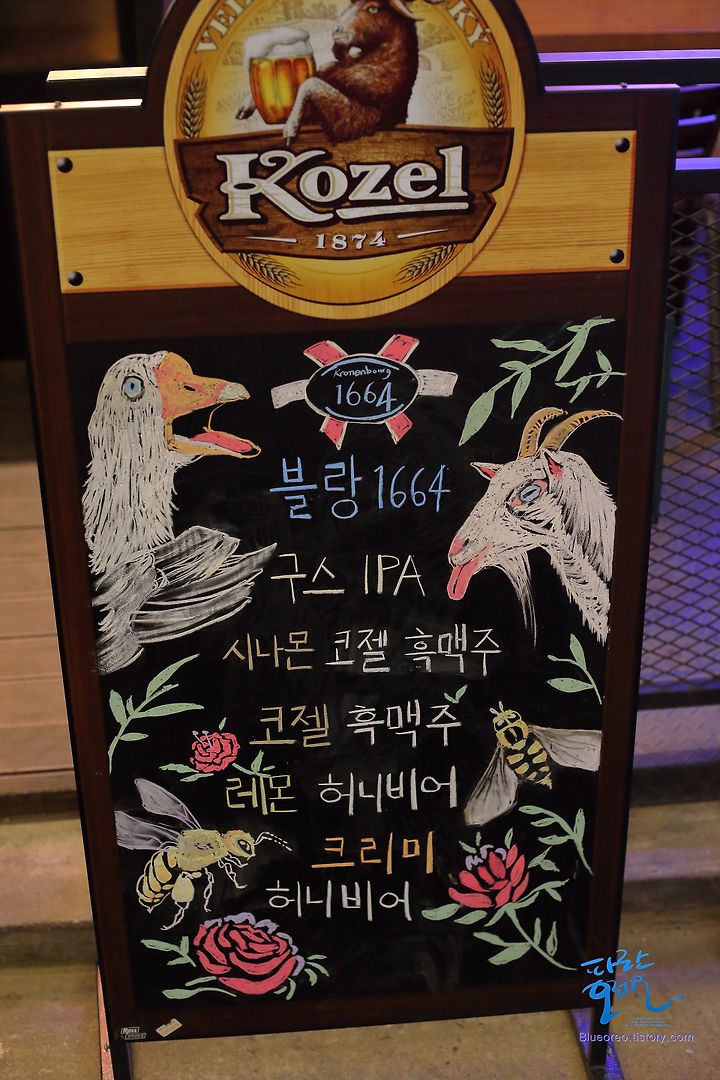 Kozel
1874
Kronenbourg
1664
블랑 1664
구스 IPA
시나몬 코젤 흑맥주
코젤 흑맥주
레몬 허니비어
크리미
허니비어
파란
Blueoreo.tistory.com